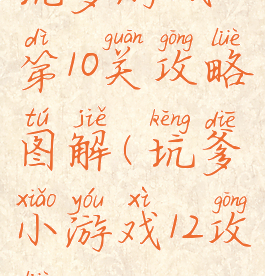 dì guān gōng lüè
第10关攻略
tú jiě kēng diē
图解(坑爹
xiǎo yóu xì gōng
小游戏12攻